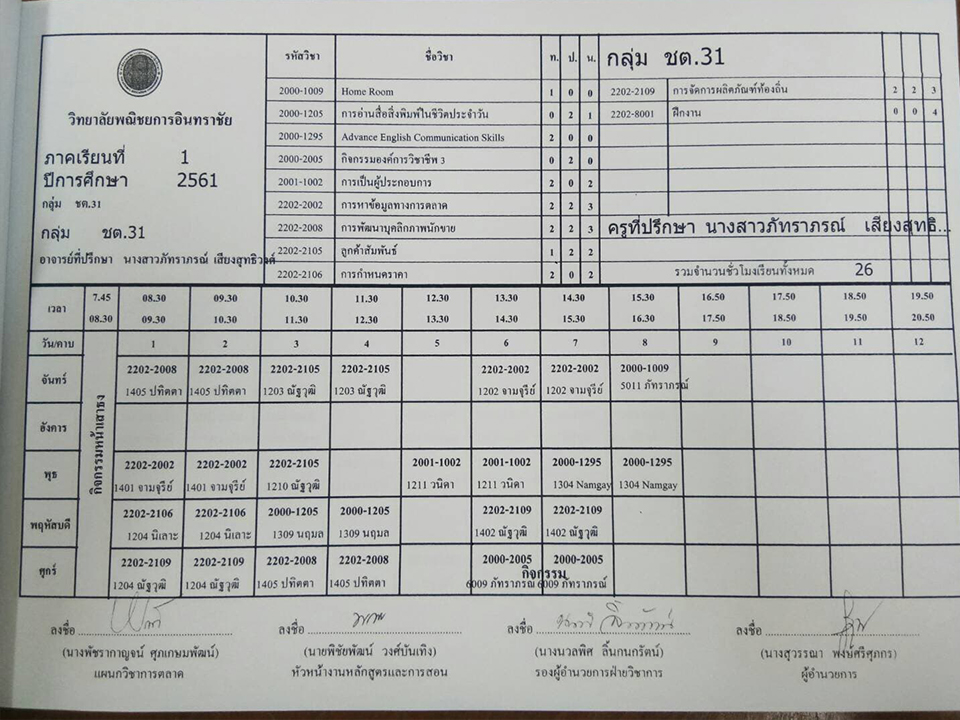 วิทยาลัยพณิชยการอินทราชัย
ภาคเรียนที่ 1
ปีการศึกษา 2561
กลุ่ม ชต.31
กลุ่ม ชต.31
อาจารย์ที่ปรึกษา นางสาวภัทราภรณ์ เสียงสุทธิวงศ์
รหัสวิชา ชื่อวิชา ท. ป. น.
2000-1009 Home Room 1 0 0
2000-1205 การอ่านสื่อสิ่งพิมพ์ในชีวิตประจำวัน 0 2 1
2000-1295 Advance English Communication Skills 2 0 0
2000-2005 กิจกรรมองค์การวิชาชีพ 3 0 2 0
2001-1002 การเป็นผู้ประกอบการ 2 0 2
2202-2002 การหาข้อมูลทางการตลาด 2 2 3
2202-2008 การพัฒนาบุคลิกภาพนักขาย 2 2 3
2202-2105 ลูกค้าสัมพันธ์ 1 2 2
2202-2106 การกำหนดราคา 2 0 2
กลุ่ม ชต.31
2202-2109 การจัดการผลิตภัณฑ์ท้องถิ่น 2 2 3
2202-8001 ฝึกงาน 0 0 4
ครูที่ปรึกษา นางสาวภัทราภรณ์ เสียงสุทธิ...
รวมจำนวนชั่วโมงเรียนทั้งหมด 26
เวลา 7.45 08.30 09.30 10.30 11.30 12.30 13.30 14.30 15.30 16.50 17.50 18.50 19.50
08.30 09.30 10.30 11.30 12.30 13.30 14.30 15.30 16.30 17.50 18.50 19.50 20.50
วัน/คาบ 1 2 3 4 5 6 7 8 9 10 11 12
กิจกรรมหน้าเสาธง
จันทร์ 2202-2008 2202-2008 2202-2105 2202-2105 2202-2002 2202-2002 2000-1009
1405 ปทิตตา 1405 ปทิตตา 1203 ณัฐวุฒิ 1203 ณัฐวุฒิ 1202 จามจุรีย์ 1202 จามจุรีย์ 5011 ภัทราภรณ์
อังคาร
พุธ 2202-2002 2202-2002 2202-2105 2001-1002 2001-1002 2000-1295 2000-1295
1401 จามจุรีย์ 1401 จามจุรีย์ 1210 ณัฐวุฒิ 1211 วนิดา 1211 วนิดา 1304 Namgay 1304 Namgay
พฤหัสบดี 2202-2106 2202-2106 2000-1205 2000-1205 2202-2109 2202-2109
1204 นิเลาะ 1204 นิเลาะ 1309 นฤมล 1309 นฤมล 1402 ณัฐวุฒิ 1402 ณัฐวุฒิ
ศุกร์ 2202-2109 2202-2109 2202-2008 2202-2008 2000-2005 2000-2005
กิจกรรม
1204 ณัฐวุฒิ 1204 ณัฐวุฒิ 1405 ปทิตตา 1405 ปทิตตา 6009 ภัทราภรณ์ 6009 ภัทราภรณ์
ลงชื่อ ลงชื่อ ลงชื่อ ลงชื่อ
(นางพัชรากาญจน์ ศุภเกษมพัฒน์) (นายพิชัยพัฒน์ วงศ์บันเทิง) (นางนวลพิศ ลิ้นกนกรัตน์) (นางสุวรรณา พงษ์ศรีศุภกร)
แผนกวิชาการตลาด หัวหน้างานหลักสูตรและการสอน รองผู้อำนวยการฝ่ายวิชาการ ผู้อำนวยการ